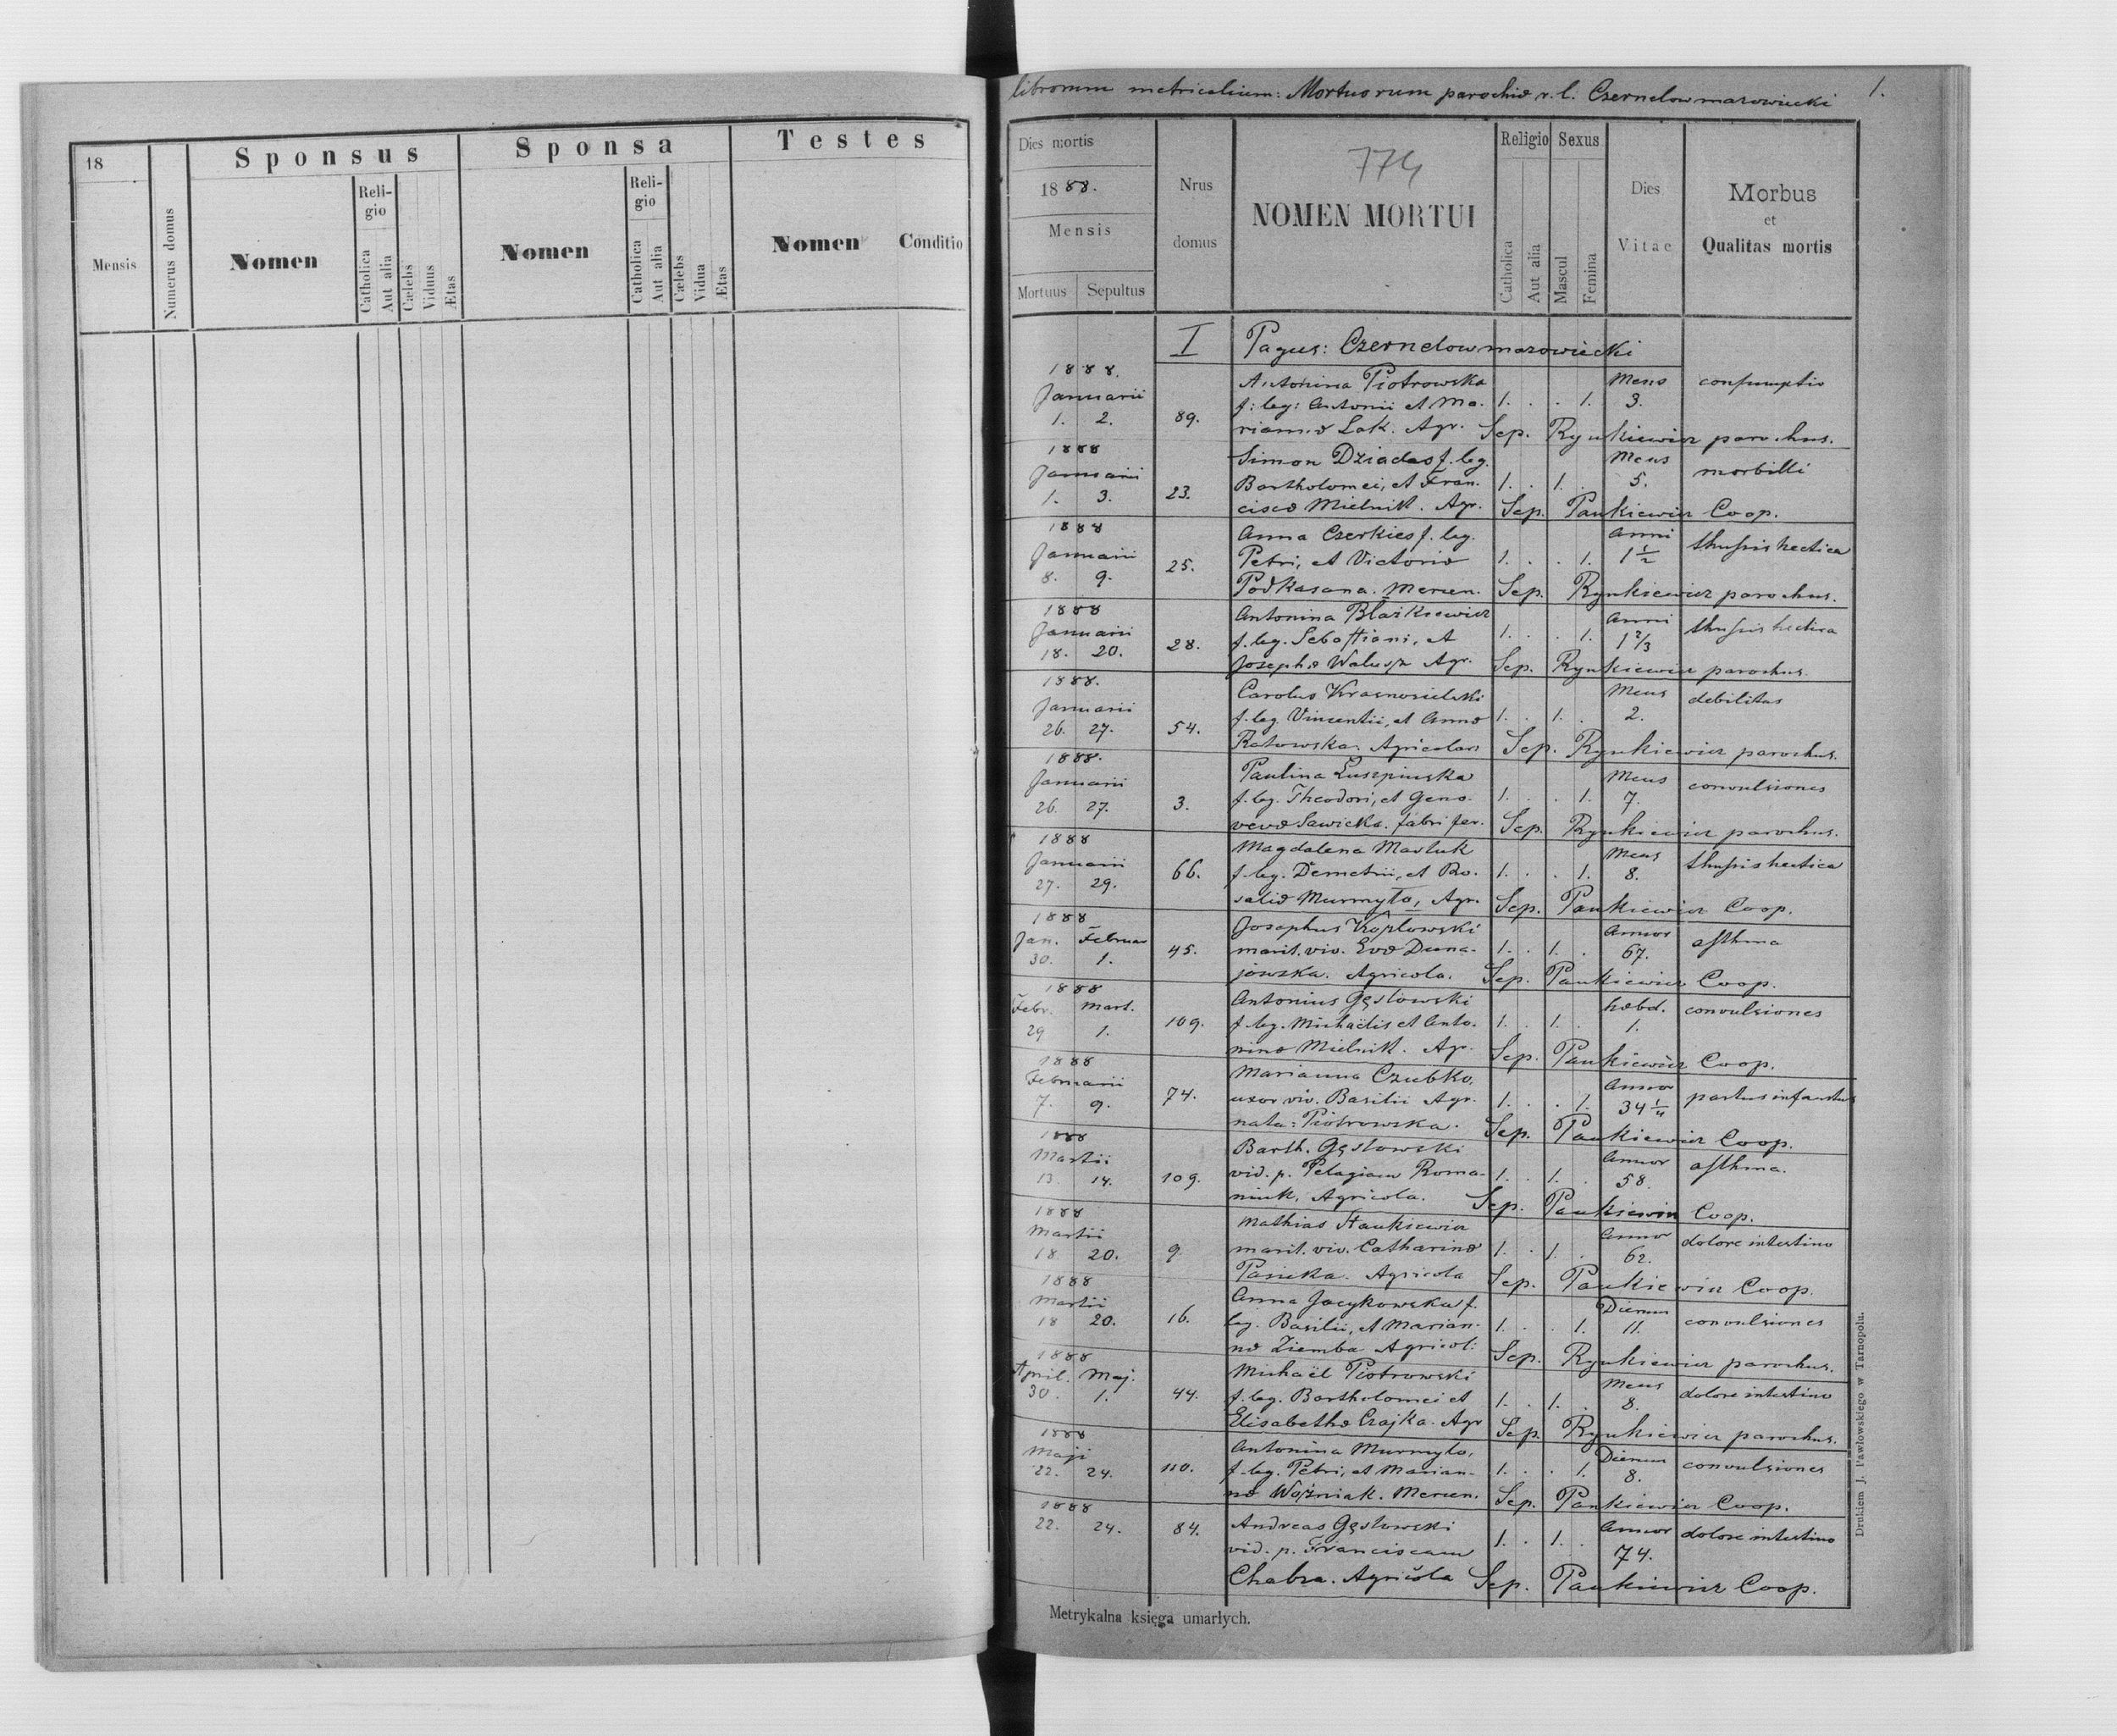 18
Sponsus
Sponsa
Testes
Mensis
Numerus domus
Nomen
Reli-
gio
Catholica
Aut alia
Cælebs
Viduus
Ætas
Nomen
Reli-
gio
Catholica
Aut alia
Cælebs
Vidua
Ætas
Nomen
Conditio
librorum metricalium: Mortuorum parochiæ r. l. Czernelow mazowiecki 1.
Dies mortis
1888.
Mensis
Mortuus Sepultus
Nrus
domus
774
NOMEN MORTUI
Religio
Catholica
Aut alia
Sexus
Mascul
Femina
Dies
Vitae
Morbus
et
Qualitas mortis
I Pagus: Czernelow mazowiecki
1888. Antonina Piotrowska Mens consumptio
Januarii f: leg: Antonii et Ma- 1. . . 1. 3.
1. 2. 89. riannæ Lak. Agr. Sep. Rynkiewicz parochus.
1888 Simon Dziadas f. leg. Mens morbilli
Januarii Bartholomei, et Fran- 1. . 1. . 5.
1. 3. 23. ciscæ Mielnik. Agr. Sep. Pankiewicz Coop.
1888 Anna Czerkies f. leg. Anni thussis hectica
Januarii Petri, et Victoriæ 1. . . 1. 1 1/2
8. 9. 25. Podkasana. Mercen. Sep. Rynkiewicz parochus.
1888 Antonina Błażkiewicz Anni thussis hectica
Januarii f. leg. Sebastiani, et 1. . . 1. 1 2/3
18. 20. 28. Josephæ Walusz Agr. Sep. Rynkiewicz parochus.
1888. Carolus Krasnosielski Mens debilitas
Januarii f. leg. Vincentii, et Annæ 1. . 1. . 2.
26. 27. 54. Ratowska. Agricolar Sep. Rynkiewicz parochus.
1888. Paulina Łuszpinska Mens convulsiones
Januarii f. leg. Theodori, et Geno- 1. . . 1. 7.
26. 27. 3. vevæ Sawicka. fabri fer. Sep. Rynkiewicz parochus.
1888 Magdalena Mavluk Mens thussis hectica
Januarii f. leg. Demetrii, et Ro- 1. . . 1. 8.
27. 29. 66. saliæ Murmyło, Agr. Sep. Pankiewicz Coop.
1888 Josephus Kozłowski Annor asthma
Jan. Februar marit. viv. Evæ Duna- 1. . 1. . 67.
30. 1. 45. jowska. Agricola. Sep. Pankiewicz Coop.
1888 Antonius Gęstowski hebd. convulsiones
Febr. Mart. f. leg. Michaëlis et Anto- 1. . 1. . 1.
29 1. 109. ninæ Mielnik. Agr. Sep. Pankiewicz Coop.
1888 Marianna Czubko, Annor partus infaustus
Februarii uxor viv. Basilii Agr. 1. . . 1. 34 1/4
7. 9. 74. nata: Piotrowska. Sep. Pankiewicz Coop.
1888 Barth. Gęstowski Annor asthma.
Martii vid. p. Pelagiam Roma- 1. . 1. . 58.
13. 14. 109. niuk, Agricola. Sep. Pankiewicz Coop.
1888 Mathias Stankiewicz Annor dolore intestino
Martii marit. viv. Catharinæ 1. . 1. . 62.
18. 20. 9. Pasieka. Agricola Sep. Pankiewicz Coop.
1888 Anna Jacykowska f. Dierum convulsiones
Martii leg. Basilii, et Marian- 1. . . 1. 11.
18 20. 16. næ Ziemba Agricol: Sep. Rynkiewicz parochus.
1888 Michaël Piotrowski Mens dolore intestino
April. Maj. f. leg. Bartholomei et 1. . 1. . 8.
30. 1. 44. Elisabethæ Czajka. Agr Sep. Rynkiewicz parochus.
1888 Antonina Murmyło, Dierum convulsiones
Maji f. leg. Petri, et Marian- 1. . . 1. 8.
22. 24. 110. næ Woźniak. Mercen. Sep. Pankiewicz Coop.
1888 Andreas Gęstowski Annor dolore intestino
22. 24. 84. vid. p. Franciscam 1. . 1. . 74.
Chabza. Agricola Sep. Pankiewicz Coop.
Metrykalna księga umarłych.
Drukiem J. Pawłowskiego w Tarnopolu.